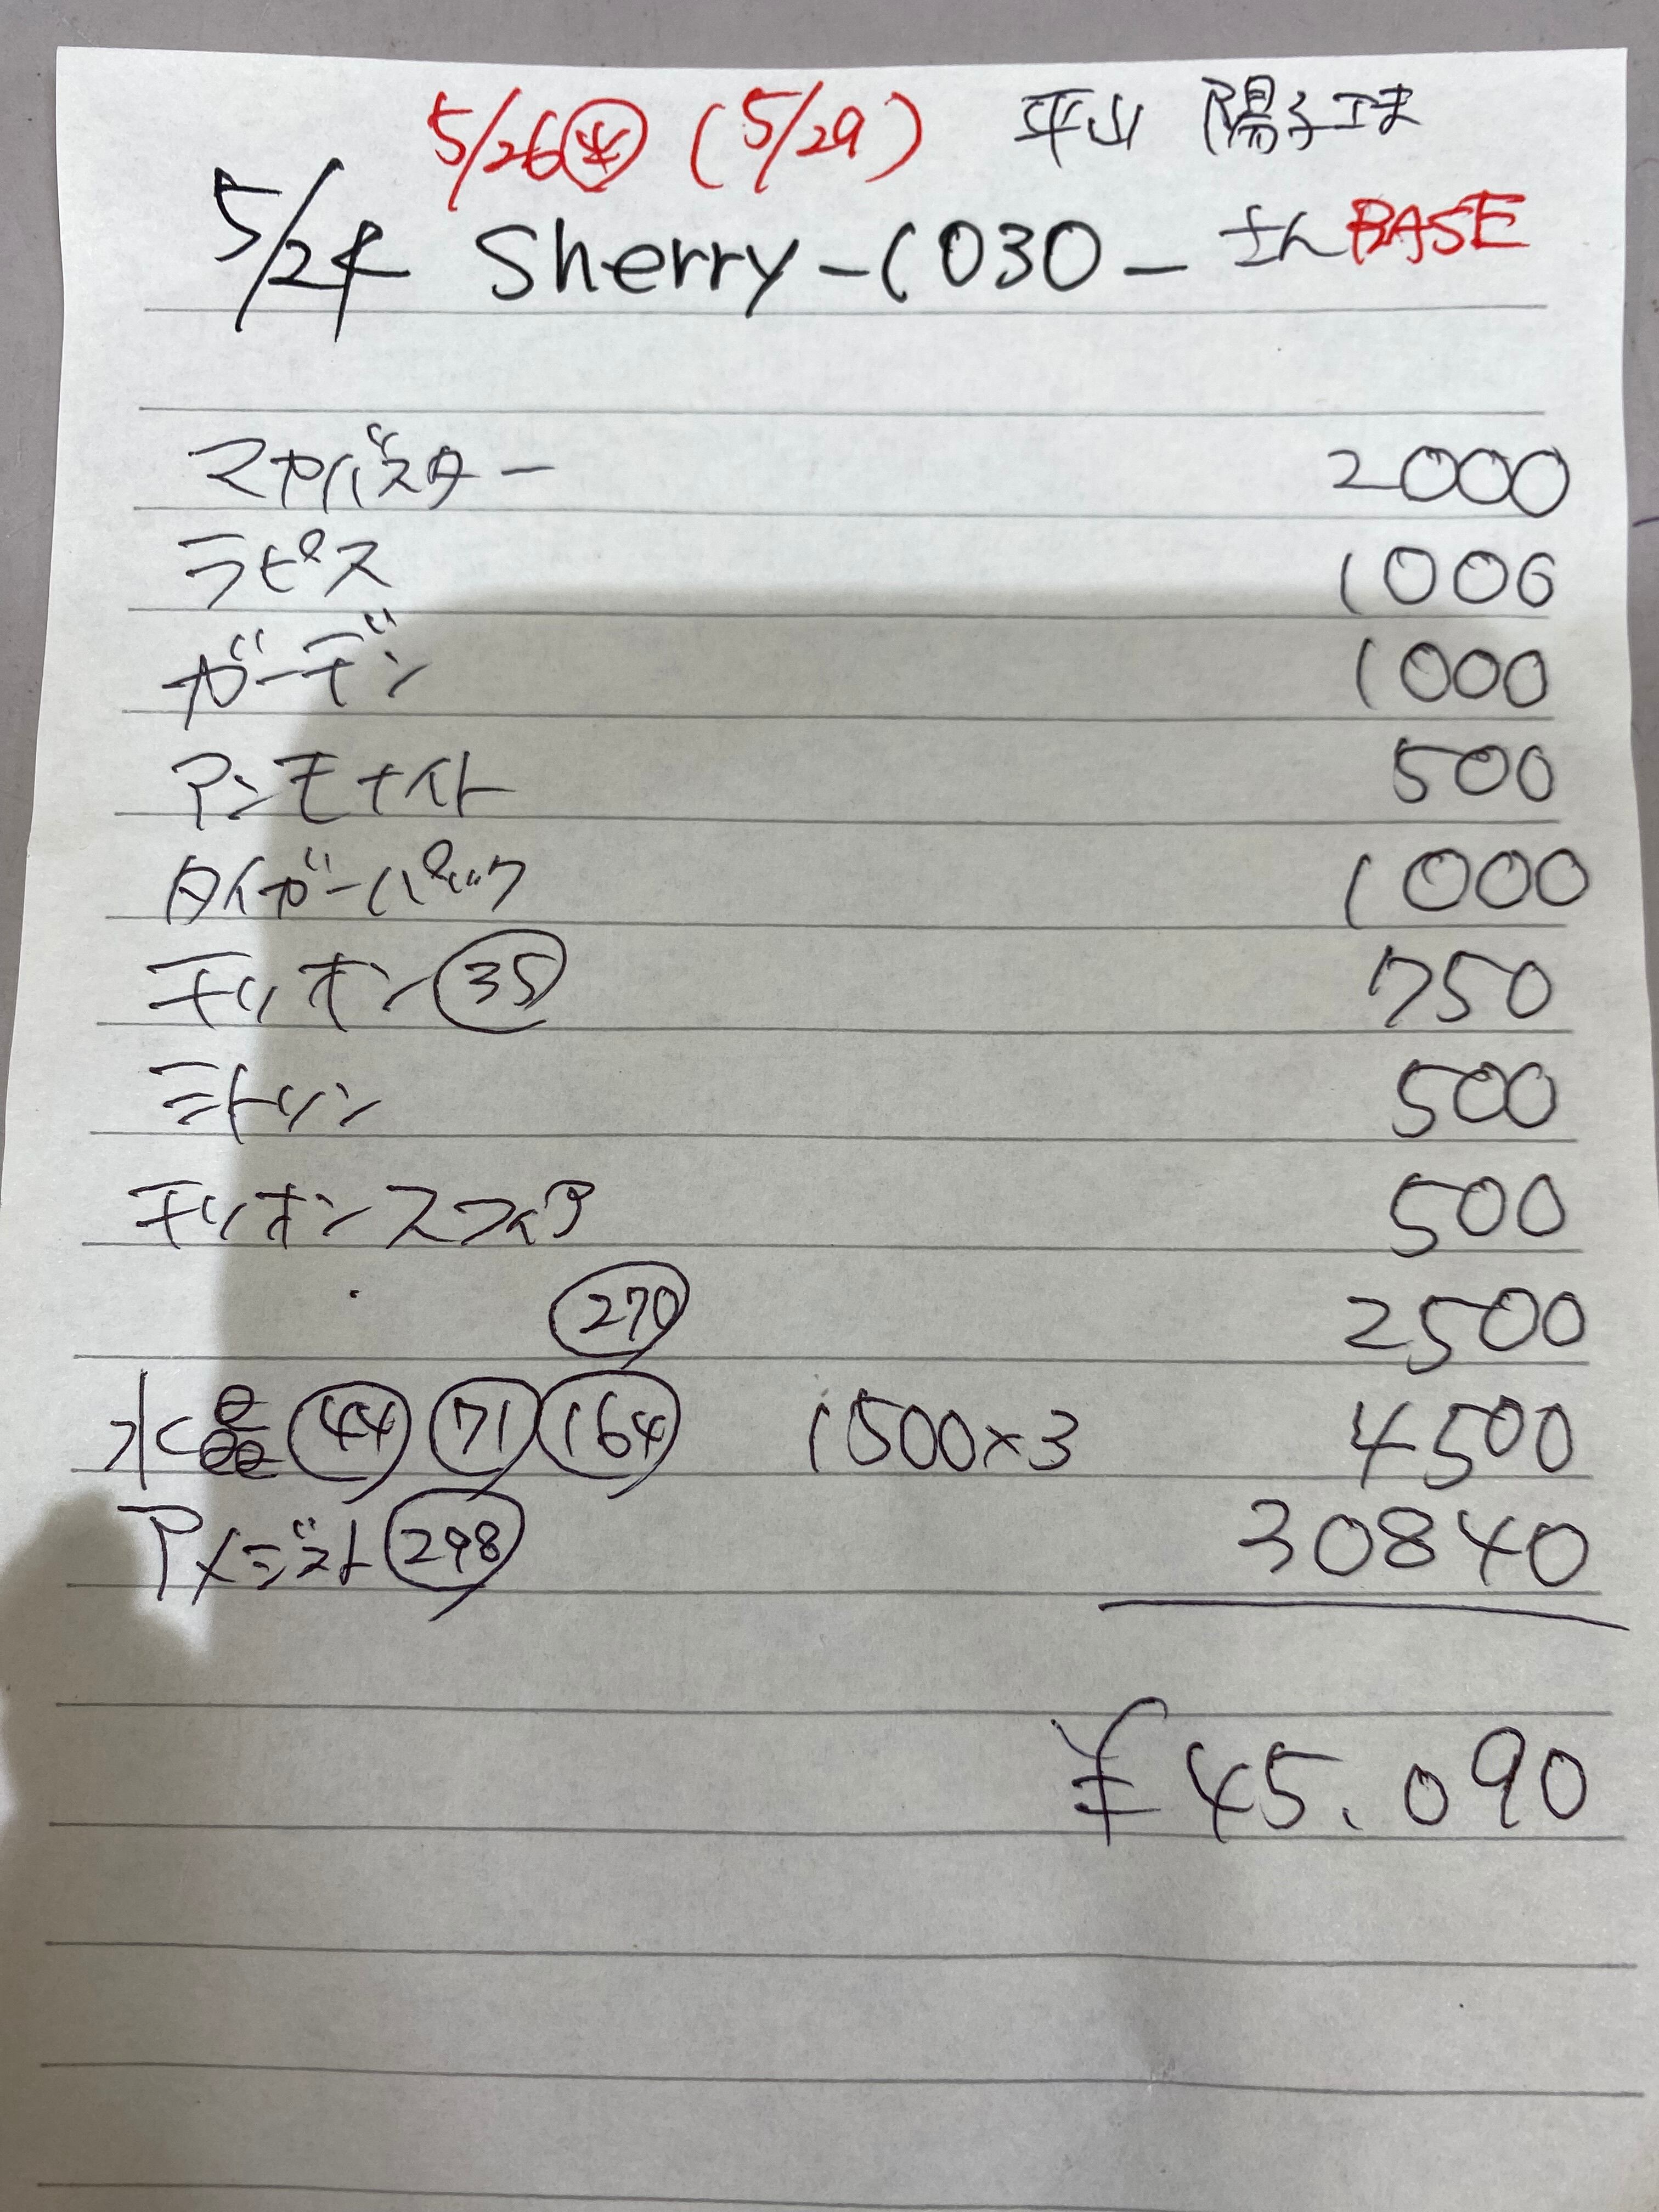 5/26㊍ (5/29) 平山 陽子さま
5/24 Sherry-1030- さん BASE
マヤバスター 2000
ラピス 1000
ガーデン 1000
アンモナイト 500
タイガーパック 1000
モリオン ㉟ 750
シトリン 500
モリオンスフィア 500
270 2500
水晶 44 71 164 1500×3 4500
アメジスト 298 30840
¥45.090